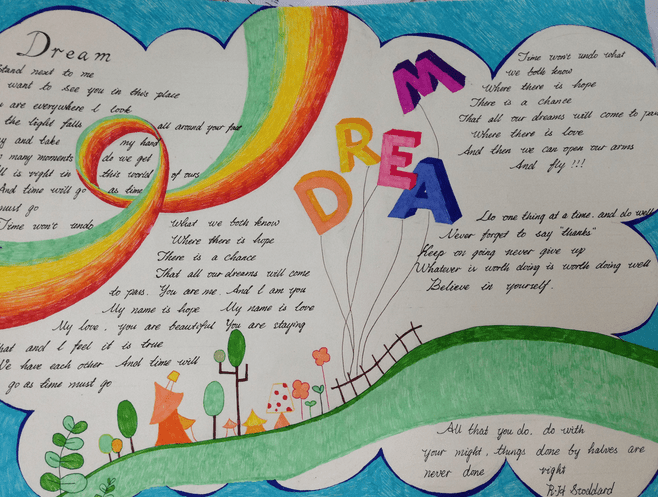 Dream
Stand next to me
want to see you in this place
are everywhere I look
the light falls all around your feet
and take my hand
many moments do we get
is right in this world of ours
And time will go as time
must go
Time won't undo
What we both know
Where there is hope
There is a chance
That all our dreams will come
to pass. You are me. And I am you
My name is hope My name is love
My love, you are beautiful You are staying
that and I feel it is true
We have each other And time will
go as time must go
DREAM
Time won't undo what
we both know
Where there is hope
There is a chance
That all our dreams will come to pass
Where there is love
And then we can open our arms
And fly !!!
Do one thing at a time. and do well
Never forget to say "thanks"
Keep on going never give up
Whatever is worth doing is worth doing well
Believe in yourself.
All that you do, do with
your might, things done by halves are
never done right
R·H Stoddard